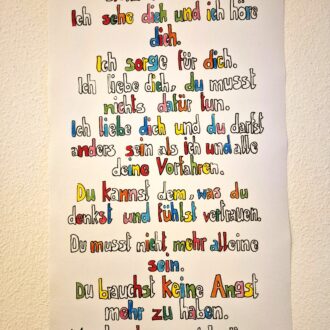 Ich sehe dich und ich höre
dich.
Ich sorge für dich.
Ich liebe dich, du musst
nichts dafür tun.
Ich liebe dich und du darfst
anders sein als ich und alle
deine Vorfahren.
Du kannst dem, was du
denkst und fühlst vertrauen.
Du musst nicht mehr alleine
sein.
Du brauchst keine Angst
mehr zu haben.